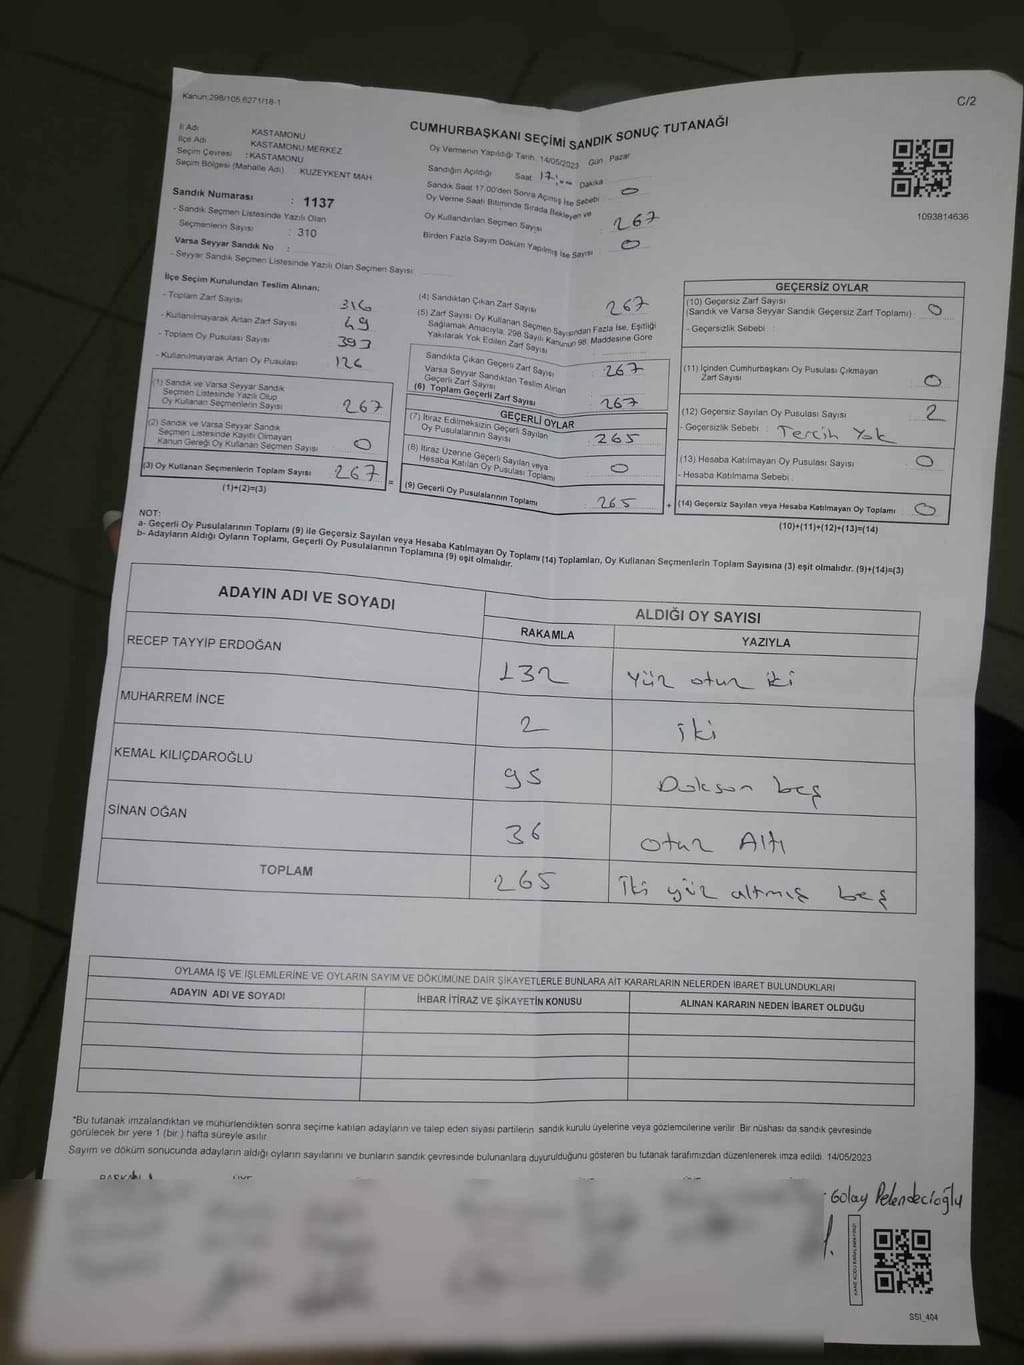 Kanun:298/105,6271/18-1
C/2
CUMHURBAŞKANI SEÇİMİ SANDIK SONUÇ TUTANAĞI
İl Adı KASTAMONU
İlçe Adı KASTAMONU MERKEZ
Seçim Çevresi : KASTAMONU
Seçim Bölgesi (Mahalle Adı) KUZEYKENT MAH
Sandık Numarası : 1137
- Sandık Seçmen Listesinde Yazılı Olan
Seçmenlerin Sayısı : 310
Varsa Seyyar Sandık No :
- Seyyar Sandık Seçmen Listesinde Yazılı Olan Seçmen Sayısı
Oy Vermenin Yapıldığı Tarih: 14/05/2023 Gün Pazar
Sandığın Açıldığı Saat 17:00 Dakika
Sandık Saat 17.00'den Sonra Açılmış İse Sebebi 0
Oy Verme Saati Bitiminde Sırada Bekleyen ve
Oy Kullandırılan Seçmen Sayısı 267
Birden Fazla Sayım Döküm Yapılmış İse Sayısı 0
1093814636
İlçe Seçim Kurulundan Teslim Alınan;
- Toplam Zarf Sayısı 316
- Kullanılmayarak Artan Zarf Sayısı 49
- Toplam Oy Pusulası Sayısı 393
- Kullanılmayarak Artan Oy Pusulası 126
(1) Sandık ve Varsa Seyyar Sandık
Seçmen Listesinde Yazılı Olup
Oy Kullanan Seçmenlerin Sayısı 267
(2) Sandık ve Varsa Seyyar Sandık
Seçmen Listesinde Kayıtlı Olmayan
Kanun Gereği Oy Kullanan Seçmen Sayısı 0
(3) Oy Kullanan Seçmenlerin Toplam Sayısı 267 =
(1)+(2)=(3)
(4) Sandıktan Çıkan Zarf Sayısı 267
(5) Zarf Sayısı Oy Kullanan Seçmen Sayısından Fazla İse, Eşitliği
Sağlamak Amacıyla; 298 Sayılı Kanunun 98. Maddesine Göre
Yakılarak Yok Edilen Zarf Sayısı
Sandıkta Çıkan Geçerli Zarf Sayısı 267
Varsa Seyyar Sandıktan Teslim Alınan
Geçerli Zarf Sayısı
(6) Toplam Geçerli Zarf Sayısı 267
GEÇERLİ OYLAR
(7) İtiraz Edilmeksizin Geçerli Sayılan
Oy Pusulalarının Sayısı 265
(8) İtiraz Üzerine Geçerli Sayılan veya
Hesaba Katılan Oy Pusulası Toplamı 0
(9) Geçerli Oy Pusulalarının Toplamı 265 +
GEÇERSİZ OYLAR
(10) Geçersiz Zarf Sayısı
(Sandık ve Varsa Seyyar Sandık Geçersiz Zarf Toplamı) 0
- Geçersizlik Sebebi :
(11) İçinden Cumhurbaşkanı Oy Pusulası Çıkmayan
Zarf Sayısı 0
(12) Geçersiz Sayılan Oy Pusulası Sayısı 2
- Geçersizlik Sebebi : Tercih Yok
(13) Hesaba Katılmayan Oy Pusulası Sayısı 0
- Hesaba Katılmama Sebebi :
(14) Geçersiz Sayılan veya Hesaba Katılmayan Oy Toplamı 0
(10)+(11)+(12)+(13)=(14)
NOT:
a- Geçerli Oy Pusulalarının Toplamı (9) ile Geçersiz Sayılan veya Hesaba Katılmayan Oy Toplamı (14) Toplamları, Oy Kullanan Seçmenlerin Toplam Sayısına (3) eşit olmalıdır. (9)+(14)=(3)
b- Adayların Aldığı Oyların Toplamı, Geçerli Oy Pusulalarının Toplamına (9) eşit olmalıdır.
ADAYIN ADI VE SOYADI ALDIĞI OY SAYISI
RAKAMLA YAZIYLA
RECEP TAYYİP ERDOĞAN 132 Yüz otuz iki
MUHARREM İNCE 2 iki
KEMAL KILIÇDAROĞLU 95 Doksan beş
SİNAN OĞAN 36 otuz Altı
TOPLAM 265 İki yüz altmış beş
OYLAMA İŞ VE İŞLEMLERİNE VE OYLARIN SAYIM VE DÖKÜMÜNE DAİR ŞİKAYETLERLE BUNLARA AİT KARARLARIN NELERDEN İBARET BULUNDUKLARI
ADAYIN ADI VE SOYADI İHBAR İTİRAZ VE ŞİKAYETİN KONUSU ALINAN KARARIN NEDEN İBARET OLDUĞU
*Bu tutanak imzalandıktan ve mühürlendikten sonra seçime katılan adayların ve talep eden siyasi partilerin sandık kurulu üyelerine veya gözlemcilerine verilir. Bir nüshası da sandık çevresinde
görülecek bir yere 1 (bir) hafta süreyle asılır.
Sayım ve döküm sonucunda adayların aldığı oyların sayılarını ve bunların sandık çevresinde bulunanlara duyurulduğunu gösteren bu tutanak tarafımızdan düzenlenerek imza edildi. 14/05/2023
Golay Pelendecioğlu
SSI_404